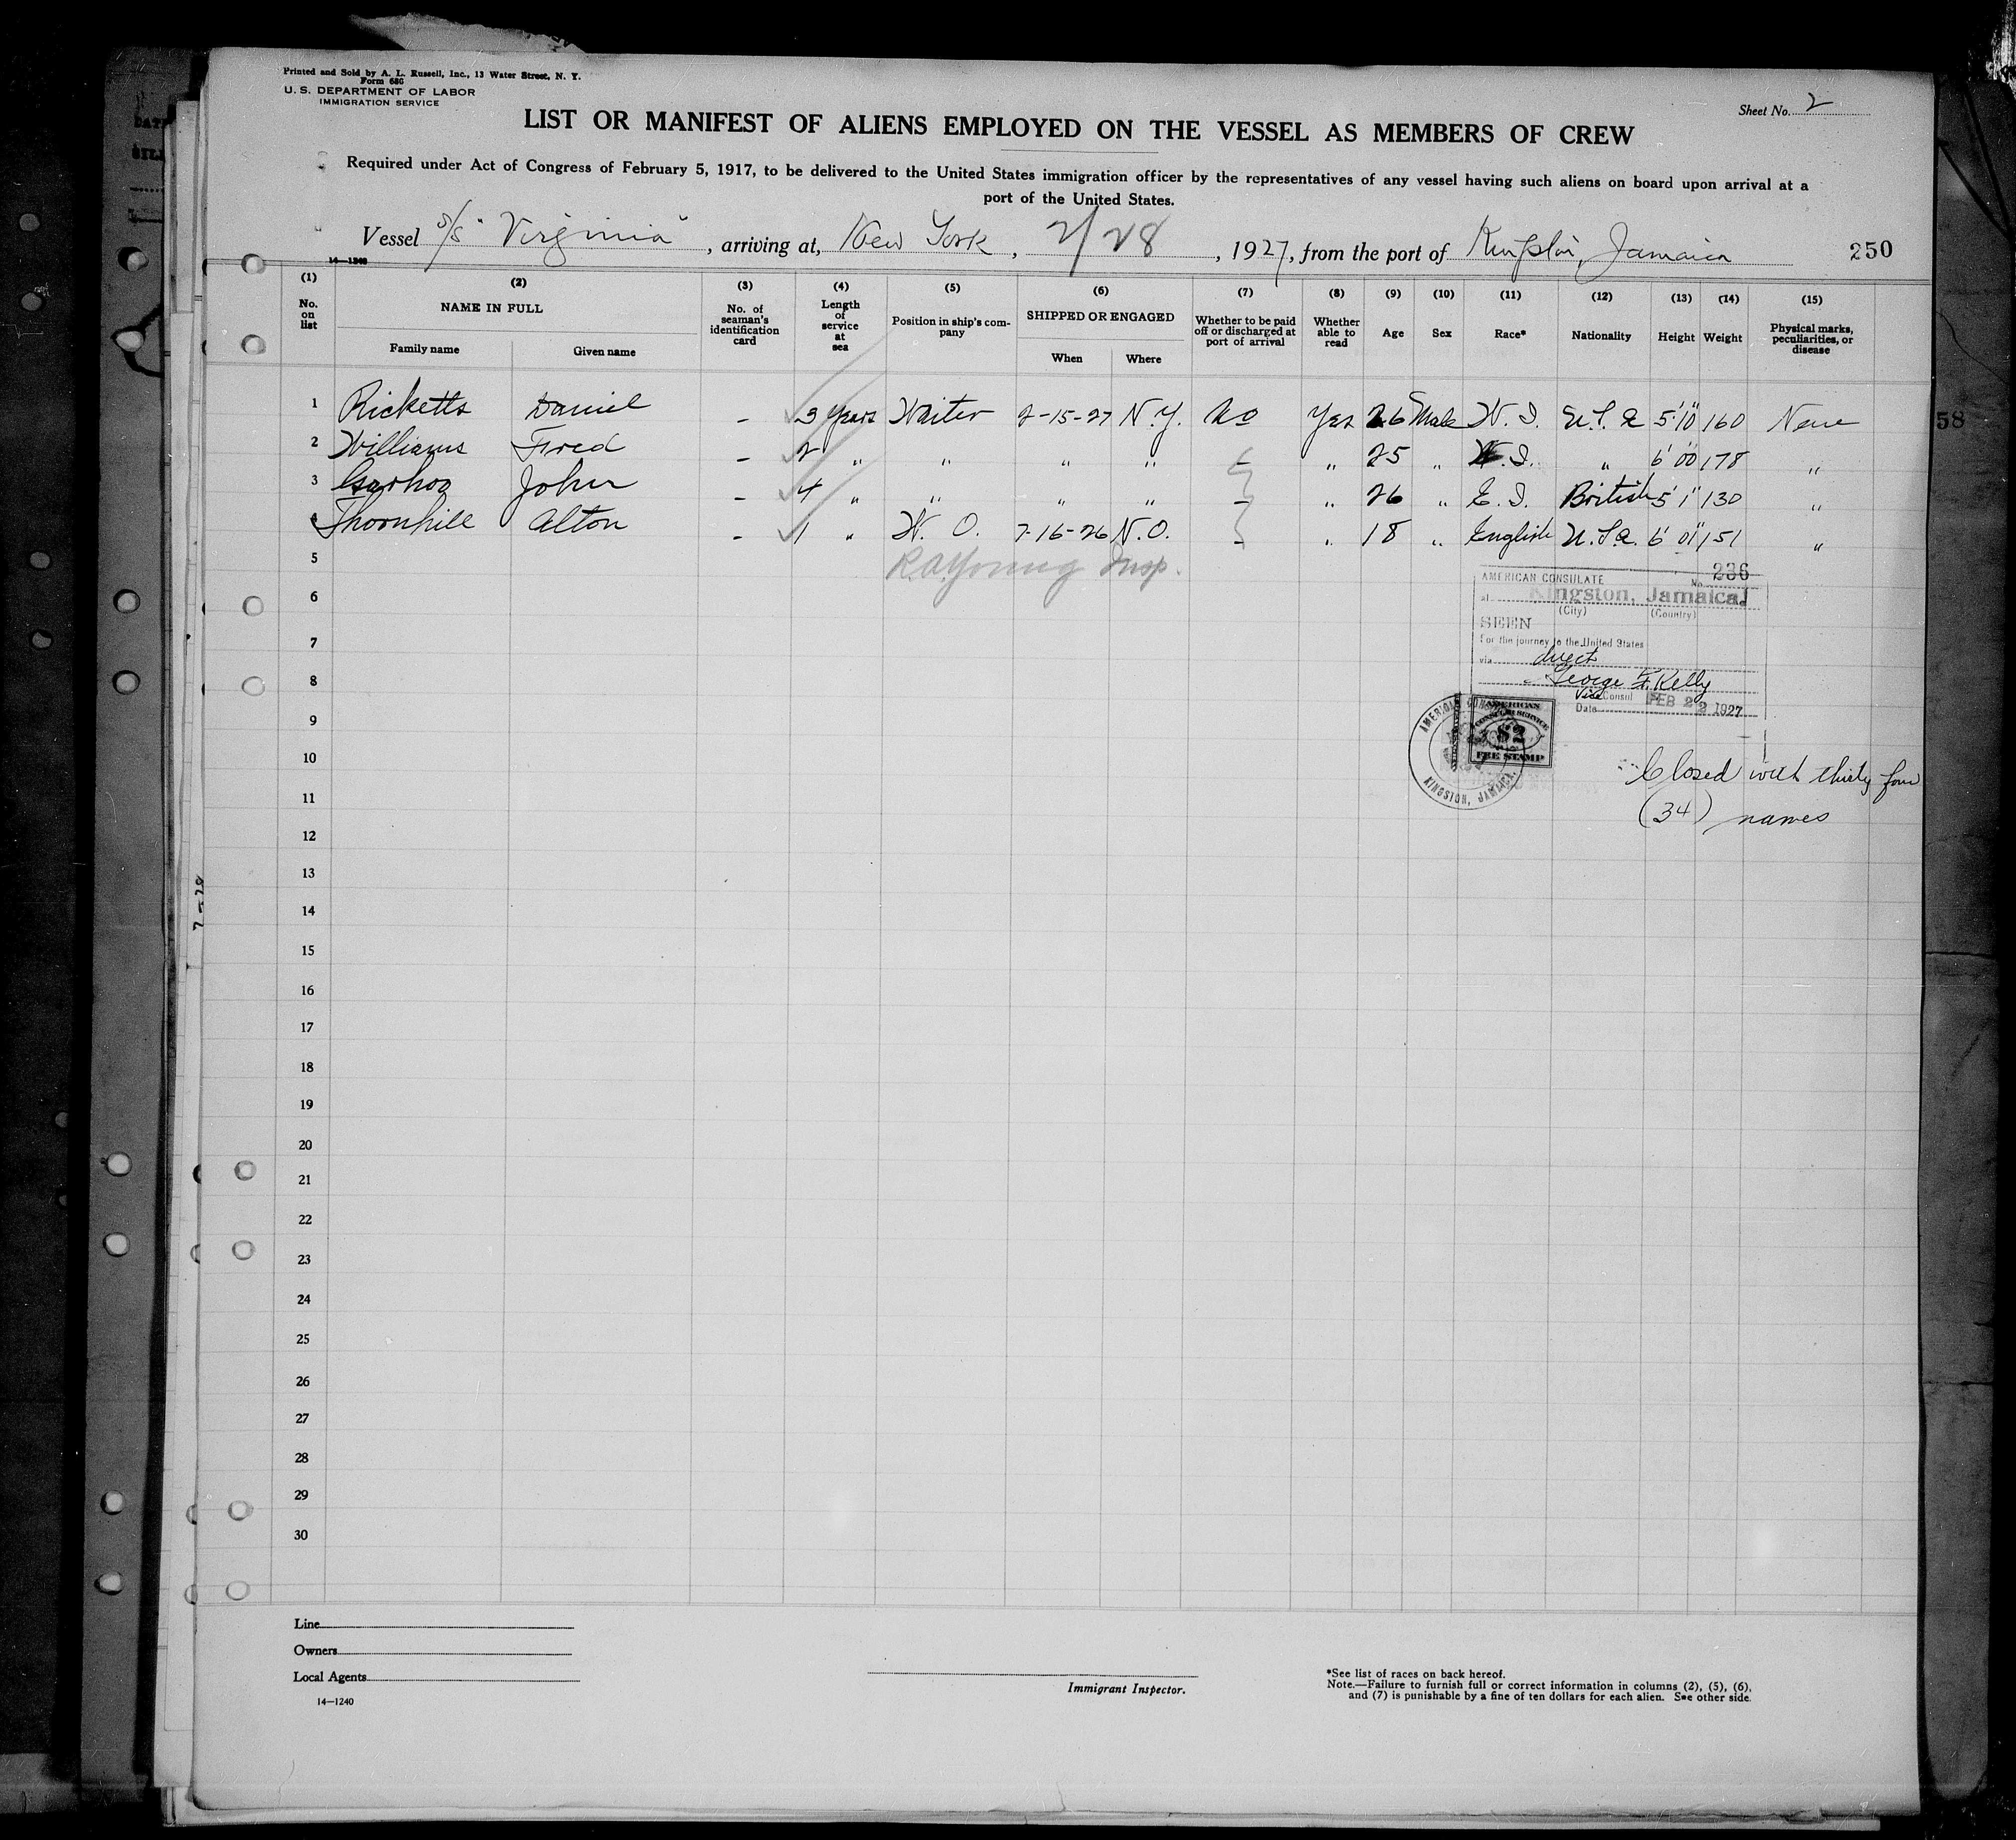 Printed and Sold by A. L. Russell, Inc., 13 Water Street, N. Y.
Form 686
U. S. DEPARTMENT OF LABOR
IMMIGRATION SERVICE
Sheet No. 2
LIST OR MANIFEST OF ALIENS EMPLOYED ON THE VESSEL AS MEMBERS OF CREW
Required under Act of Congress of February 5, 1917, to be delivered to the United States immigration officer by the representatives of any vessel having such aliens on board upon arrival at a
port of the United States.
Vessel S/S "Virginia", arriving at, New York, 2/28, 1927, from the port of Kingston, Jamaica 250
14-1240
(1) (2) (3) (4) (5) (6) (7) (8) (9) (10) (11) (12) (13) (14) (15)
No. on list NAME IN FULL Family name Given name No. of seaman's identification card Length of service at sea Position in ship's company SHIPPED OR ENGAGED When Where Whether to be paid off or discharged at port of arrival Whether able to read Age Sex Race* Nationality Height Weight Physical marks, peculiarities, or disease
1 Ricketts Daniel - 3 Years Waiter 2-15-27 N.Y. No Yes 26 Male W. I. U.S.A 5'10" 160 None
58
2 Williams Fred - 2 " " " " - " 25 " W. I. " 6'00" 178 "
3 John - 4 " " " " - " 26 " E. I. British 5'1" 130 "
4 Thornhill Alton - 1 " W. O. 7-16-26 N.O. - " 18 " English U.S.a. 6'01" 151 "
5 R.A. Young Insp.
6
7
8
9
10
11
12
13
14
15
16
17
18
19
20
21
22
23
24
25
26
27
28
29
30
AMERICAN CONSULATE No. 236
at Kingston, Jamaica
(City) (Country)
SEEN
For the journey to the United States
via direct
George F. Kelly
Vice Consul
Date FEB 22 1927
AMERICAN CONSULAR SERVICE
$2
FEE STAMP
KINGSTON, JAMAICA
Closed with thirty four
(34) names
Line
Owners
Local Agents
14-1240
Immigrant Inspector.
*See list of races on back hereof.
Note.—Failure to furnish full or correct information in columns (2), (5), (6),
and (7) is punishable by a fine of ten dollars for each alien. See other side.